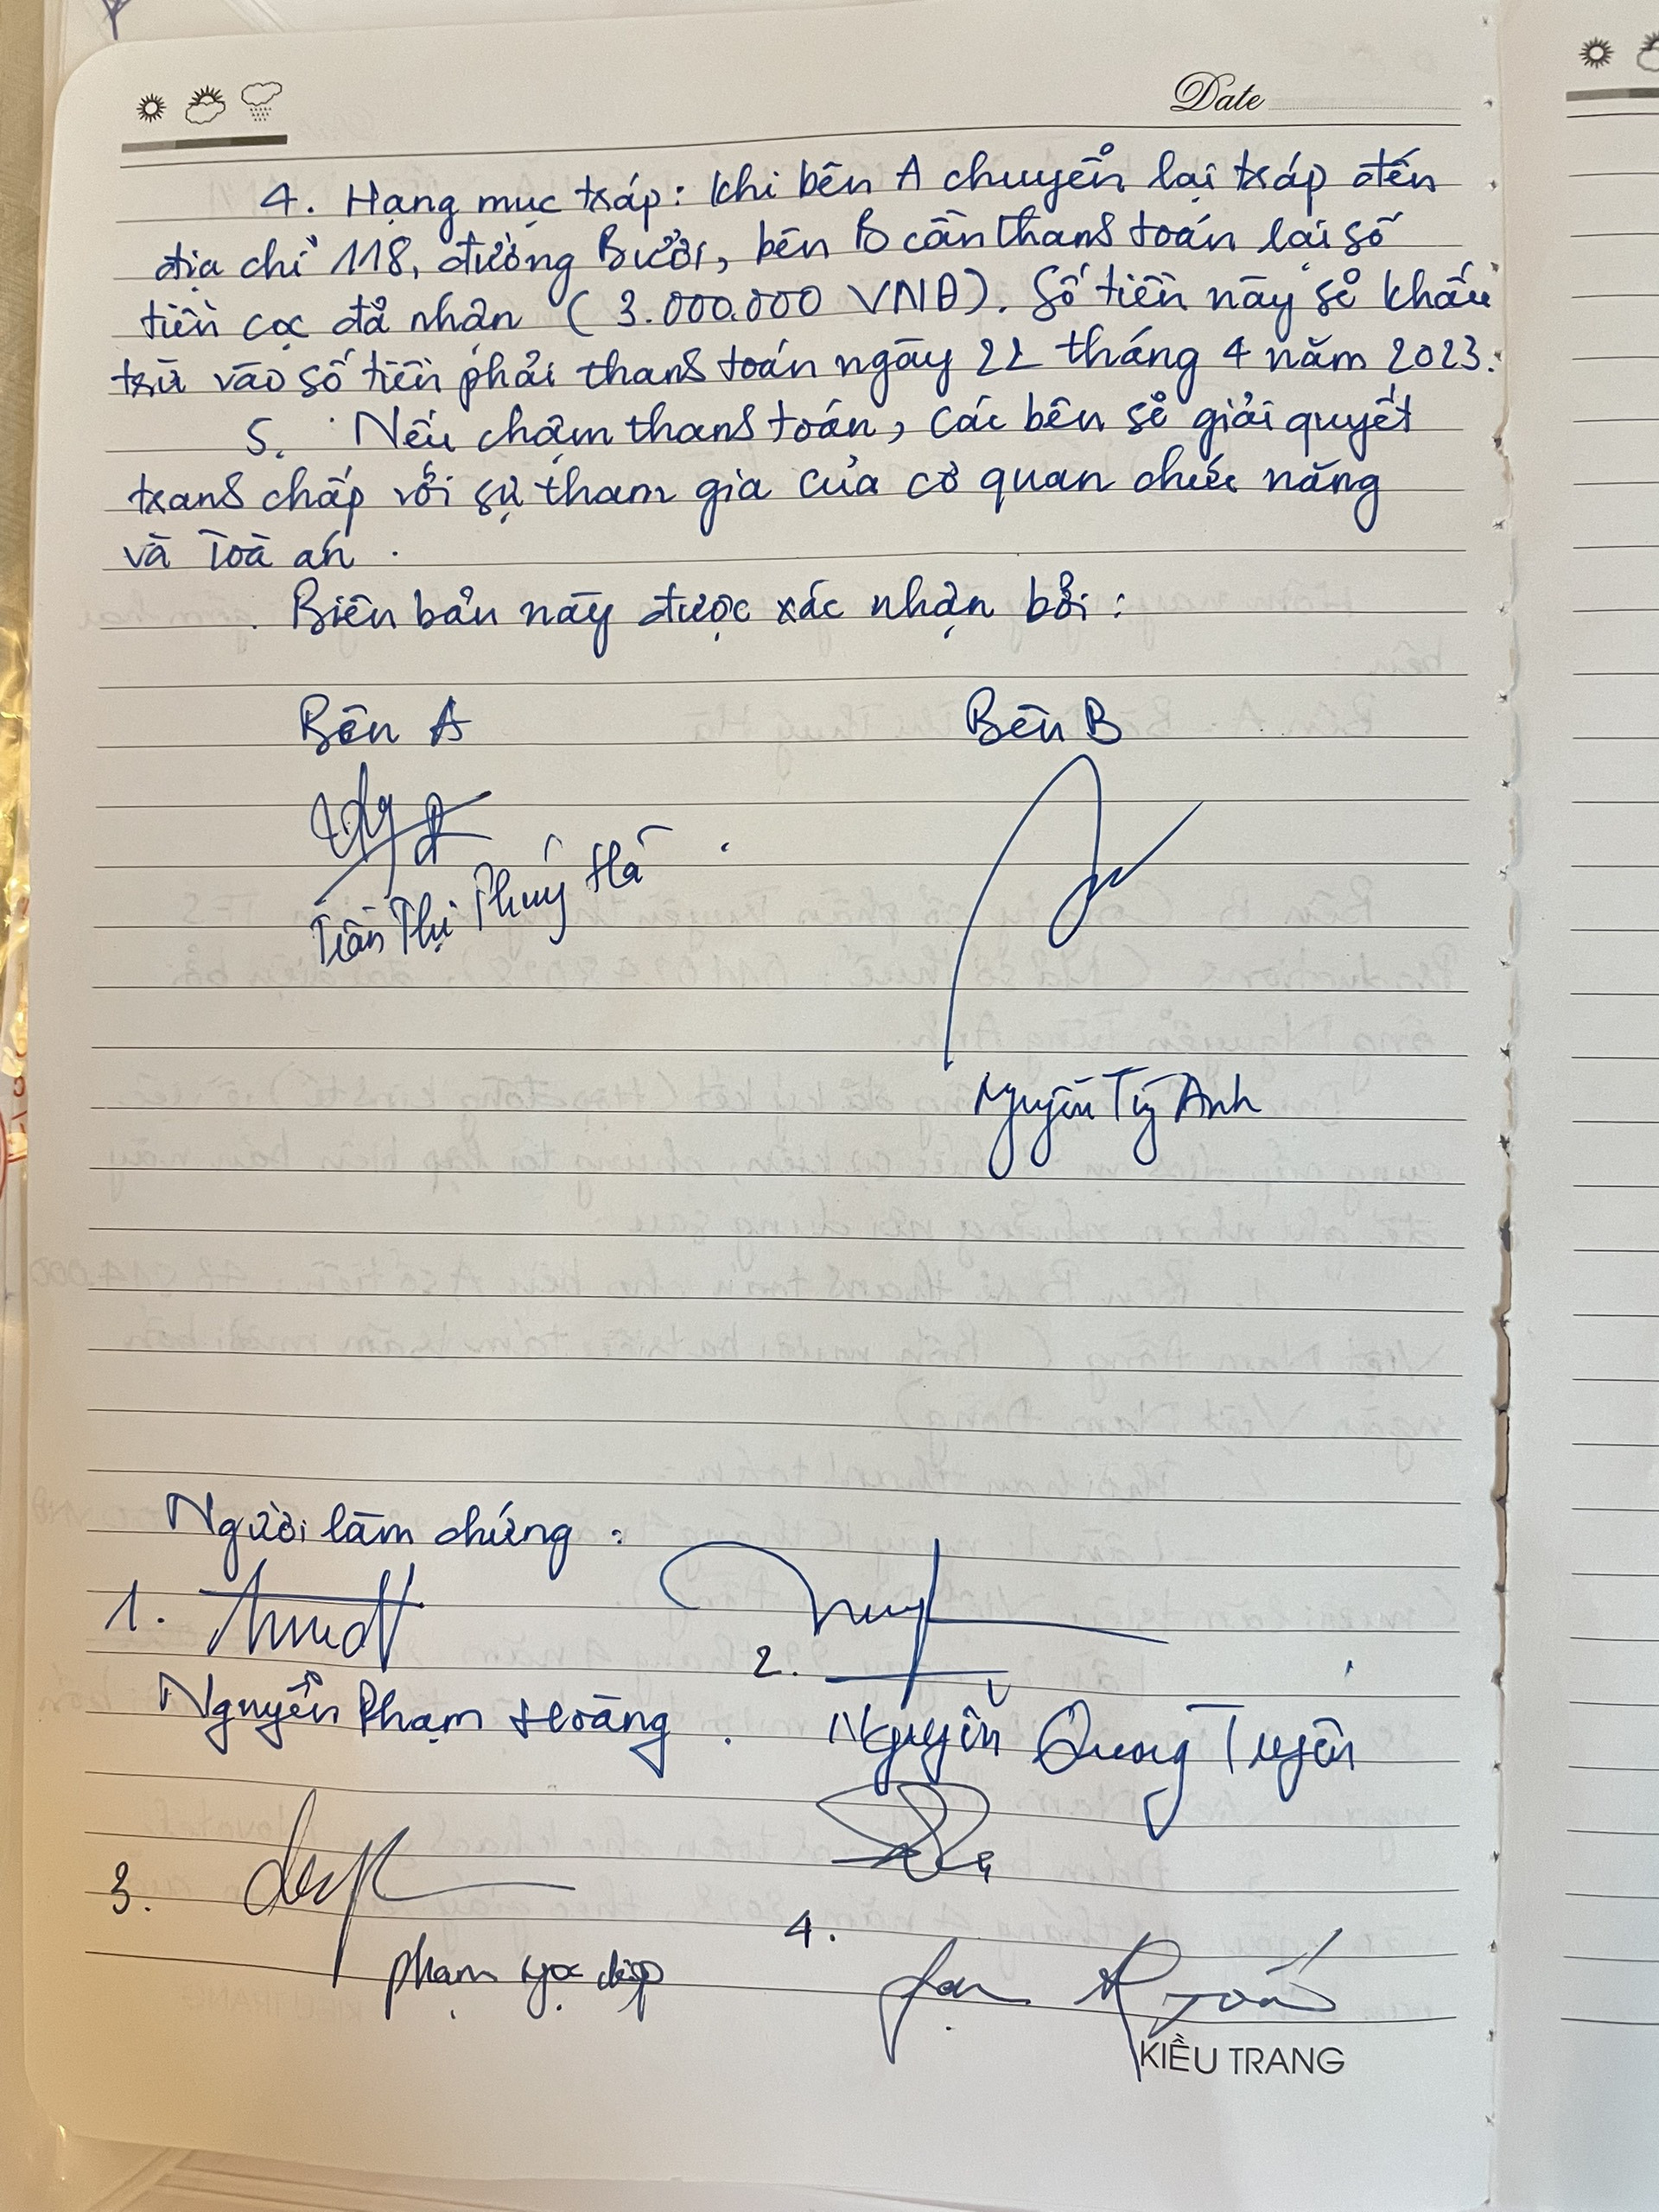 Date
4. Hạng mục tráp: Khi bên A chuyển lại tráp đến
địa chỉ 118, đường Bưởi, bên B cần thanh toán lại số
tiền cọc đã nhận (3.000.000 VNĐ). Số tiền này sẽ khấu
trừ vào số tiền phải thanh toán ngày 22 tháng 4 năm 2023.
5. Nếu chậm thanh toán, các bên sẽ giải quyết
tranh chấp với sự tham gia của cơ quan chức năng
và Toà án.
Biên bản này được xác nhận bởi:
Bên A Bên B
Trần Thị Thuý Hà
Nguyễn Tùng Anh
Người làm chứng:
1.
2.
Nguyễn Phạm Hoàng. Nguyễn Quang Tuyên
3.
4.
Phạm Ngọc Diệp
KIỀU TRANG